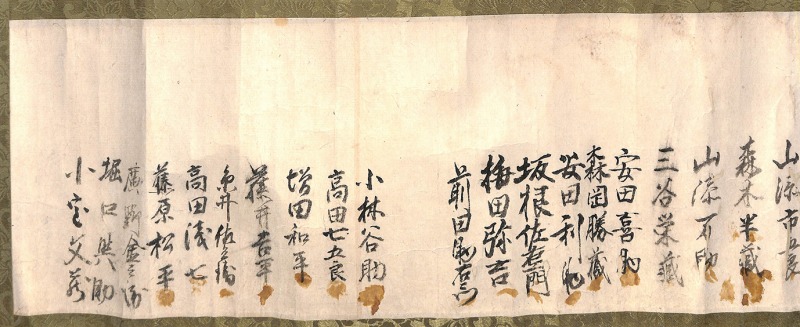 山添市五良
森木半蔵
山添石助
三谷栄蔵
安田喜助
森岡勝蔵
安田利助
坂根佐右衛門
梅田弥吉
前田
小林谷助
高田七五良
増田和平
藤井吉平
糸井佐蔵
高田浅七
藤原松平
廣
堀口與助
小室文蔵